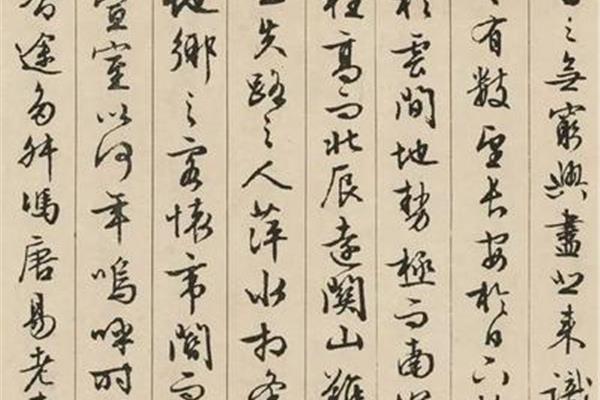 之無窮興盡悲來識
有數望長安於日下
於雲間地勢極而南
柱高而北辰遠關山難
失路之人萍水相
他鄉之客懷帝閽而
宣室以何年嗚呼時
途多舛馮唐易老